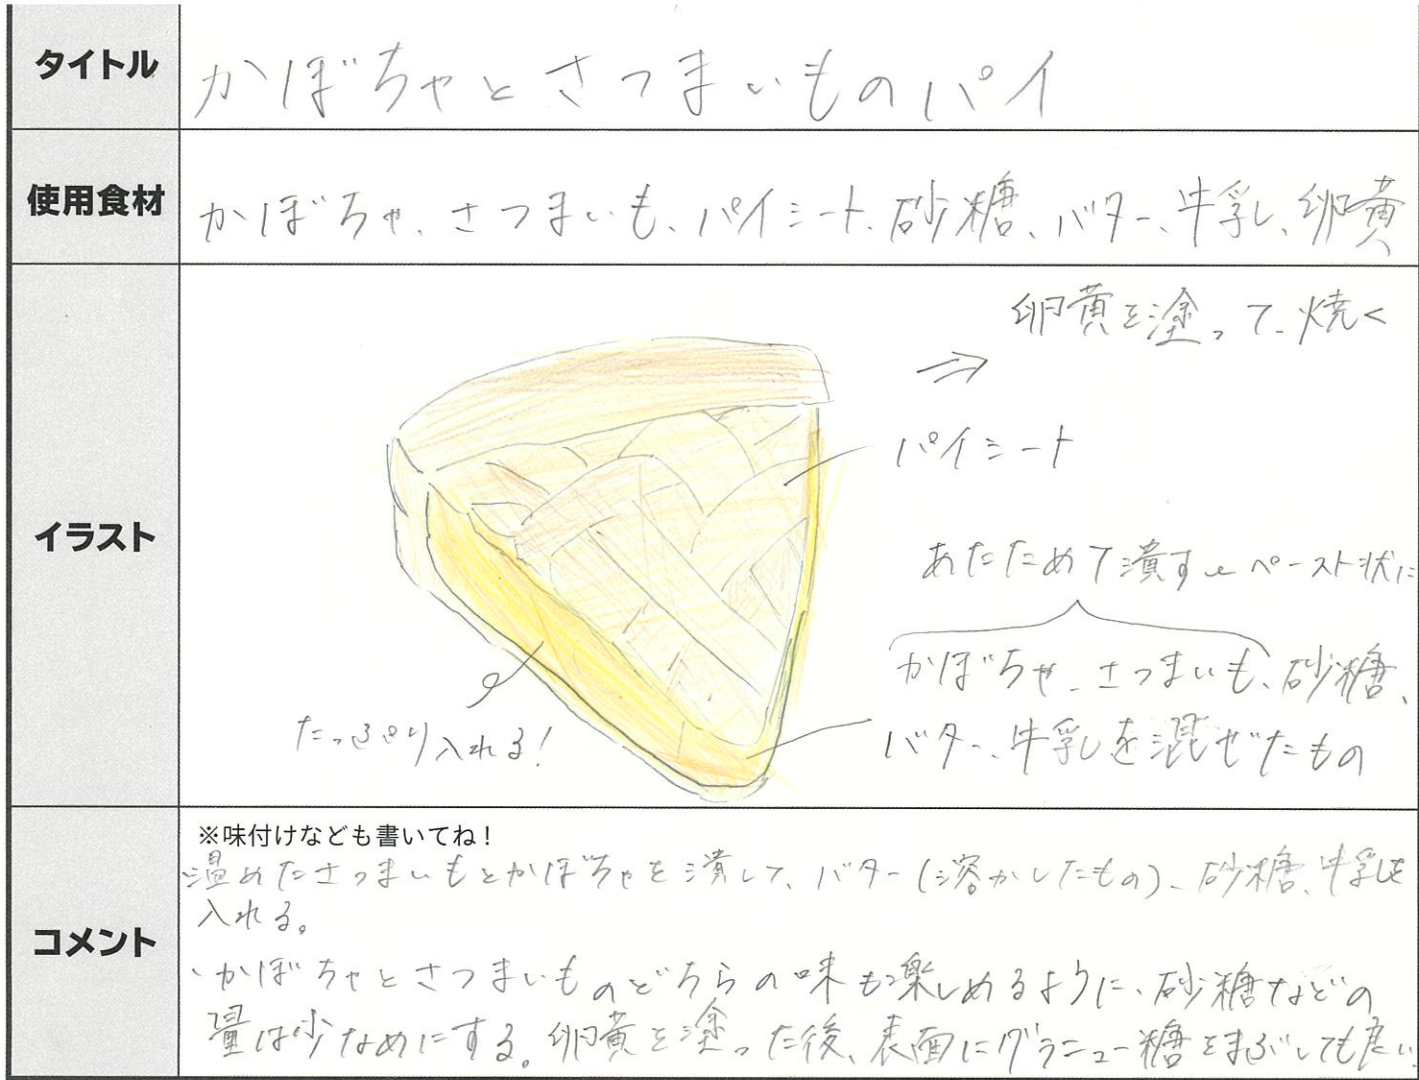 タイトル
かぼちゃとさつまいものパイ
使用食材
かぼちゃ、さつまいも、パイシート、砂糖、バター、牛乳、卵黄
イラスト
卵黄を塗って、焼く
⇒
パイシート
あたためて潰す
ペースト状に
かぼちゃ、さつまいも、砂糖、
バター、牛乳を混ぜたもの
たっぷり入れる!
コメント
※味付けなども書いてね!
温めたさつまいもとかぼちゃを潰して、バター(溶かしたもの)、砂糖、牛乳を
入れる。
かぼちゃとさつまいものどちらの味も楽しめるように、砂糖などの
量は少なめにする。卵黄を塗った後、表面にグラニュー糖をまぶしても良い